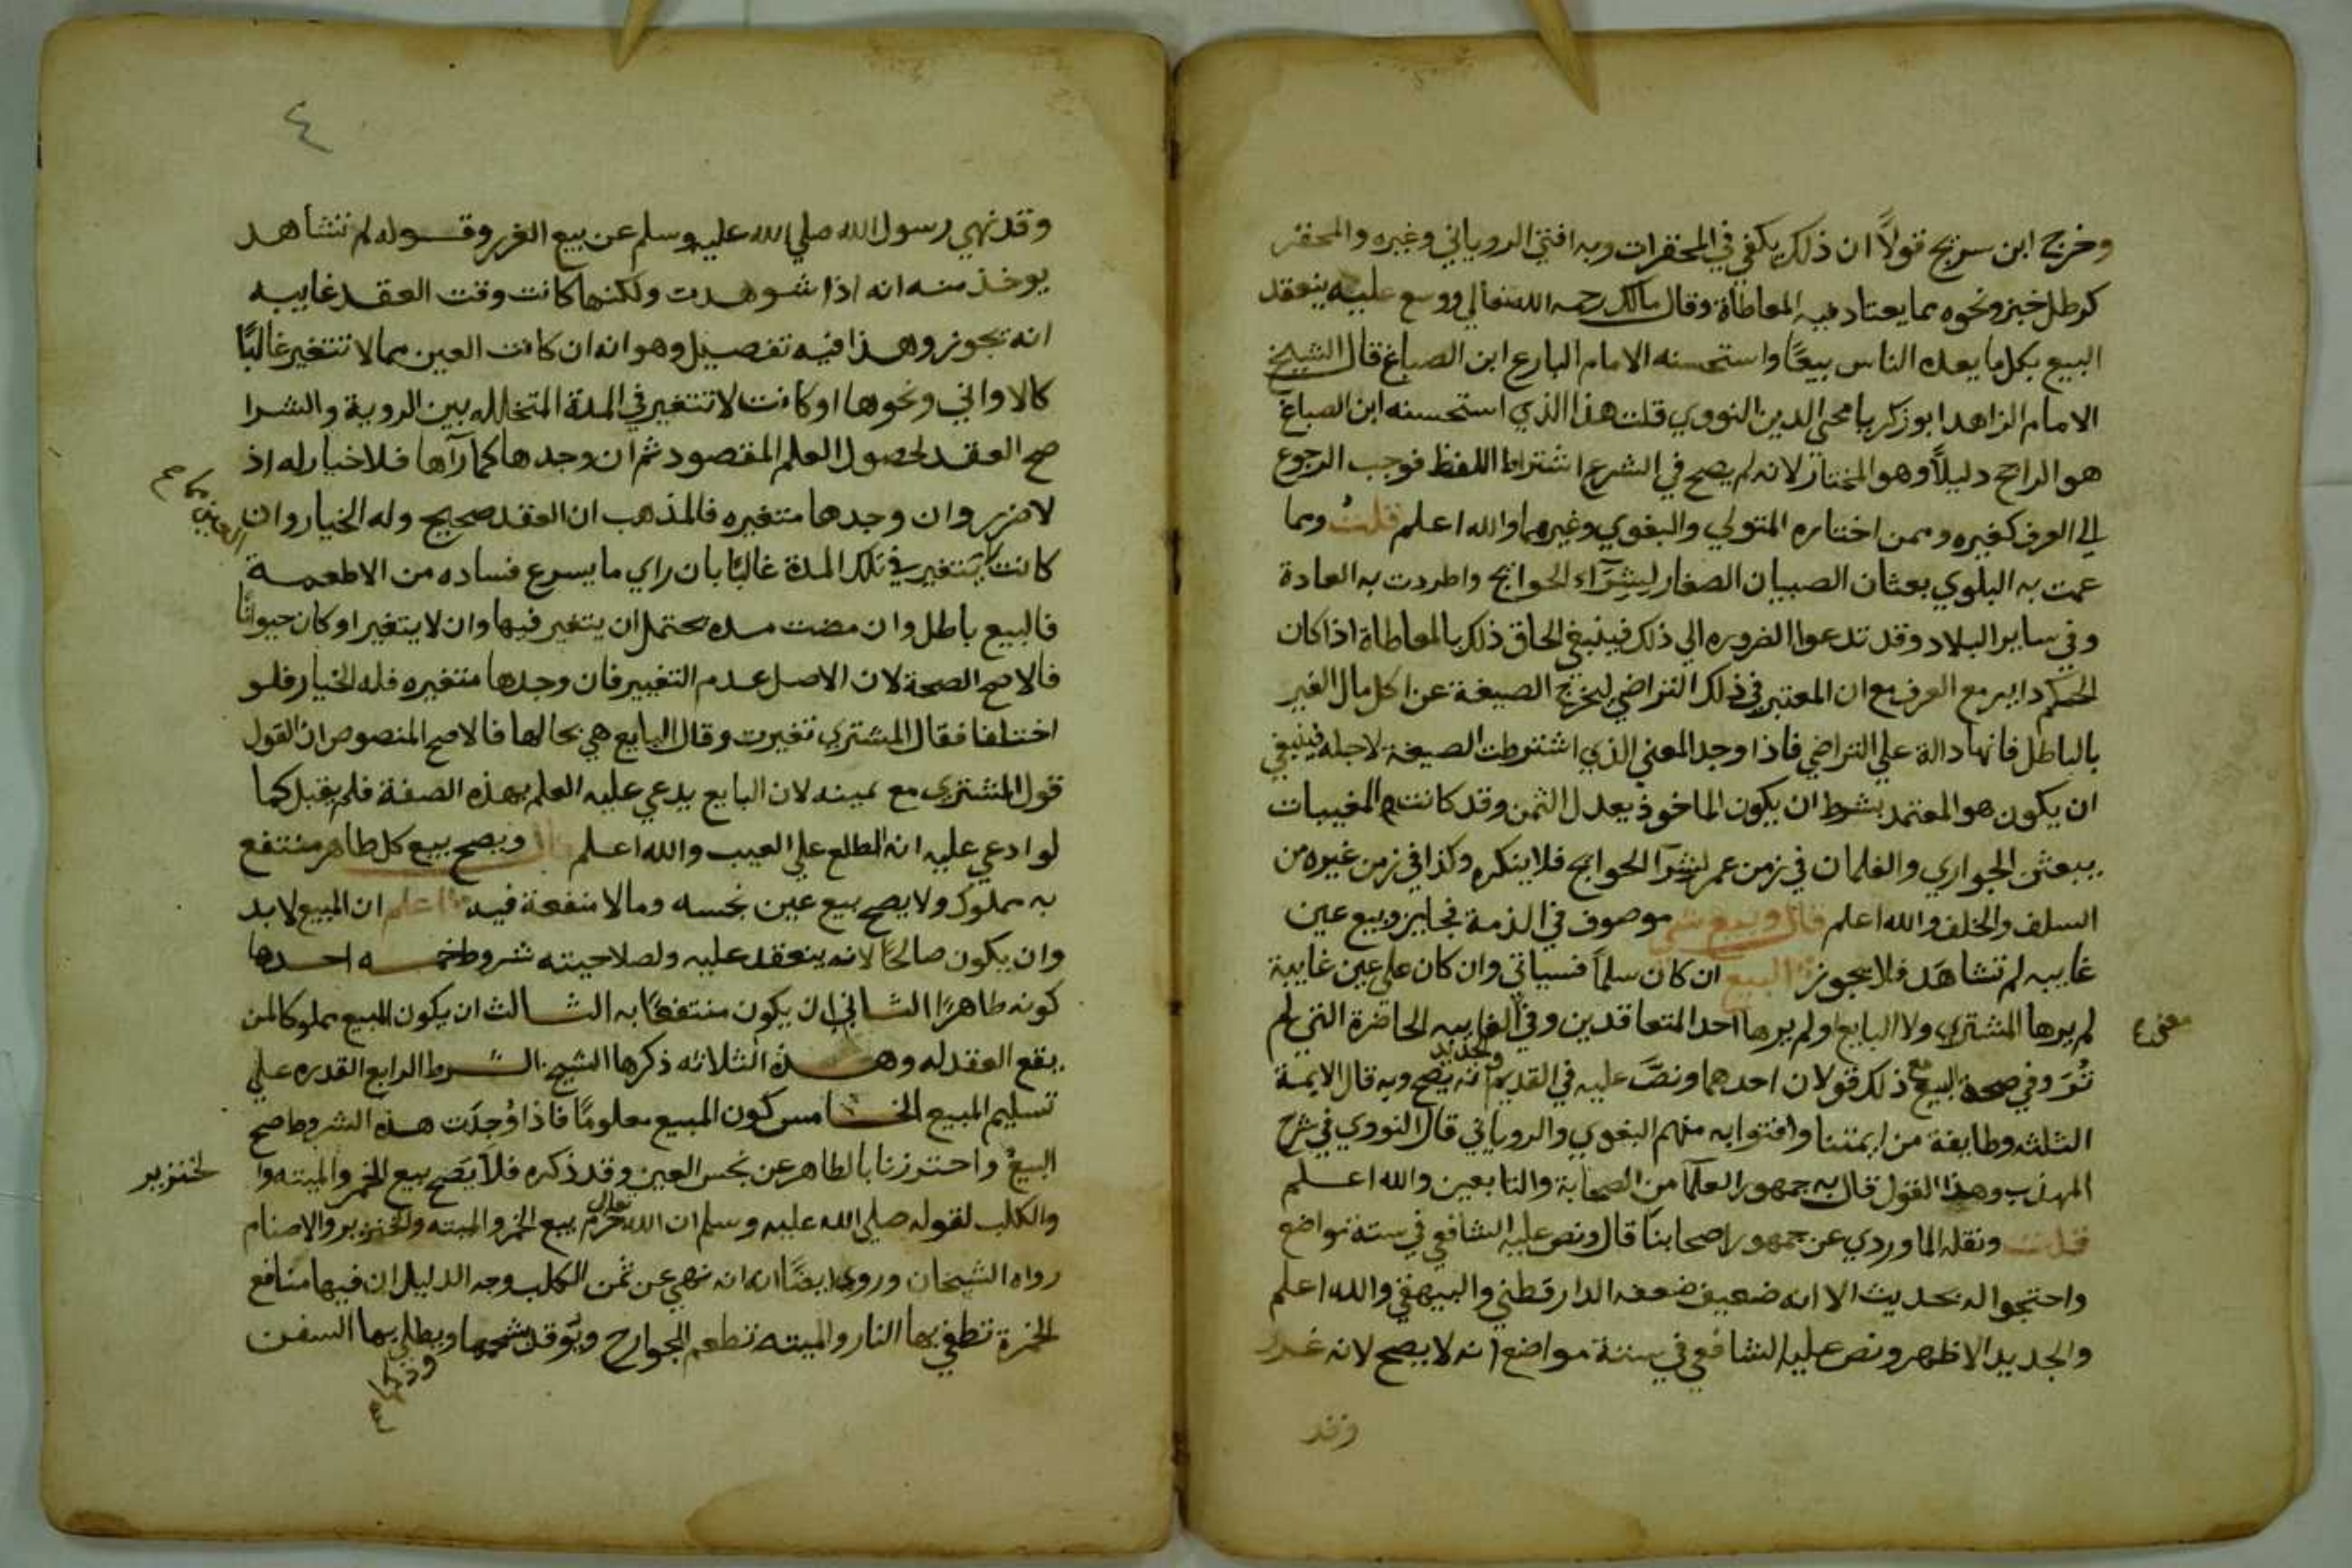 وخرج ابن سريج قولاً ان ذلك يكفي في المحقرات وبه افتي الروياني وغيره والمحقر
كرطل خبز ونحوه مما يعتاد فيه المعاطاة وقال مالك رحمه الله تعالي ووسع عليه ينعقد
البيع بكل ما يعده الناس بيعًا واستحسنه الامام البارع ابن الصباغ قال الشيخ
الامام الزاهد ابو زكريا محي الدين النووي قلت هذا الذي استحسنه ابن الصباغ
هو الراجح دليلاً وهو المختار لانه لم يصح في الشرع اشتراط اللفظ فوجب الرجوع
الي العرف كغيره وممن اختاره المتولي والبغوي وغيرهما والله اعلم قلت ومما
عمت به البلوي بعثان الصبيان الصغار لشرآء الحوايج واطردت به العادة
وفي ساير البلاد وقد تدعوا الضروره الي ذلك فينبغي الحاق ذلك بالمعاطاة اذا كان
الحكم داير مع العرف مع ان المعتبر في ذلك التراضي ليخرج الصيغة عن اكل مال الغير
بالباطل فانها دالة علي التراضي فاذا وجد المعني الذي اشترطت الصيغة لاجله فينبغي
ان يكون هو المعتمد بشرط ان يكون الماخوذ يعدل الثمن وقد كانت المغيبات
يبعثن الجواري والغلمان في زمن عمر لشرآ الحوايج فلا ينكره وكذا في زمن غيره من
السلف والخلف والله اعلم قال وبيع شي موصوف في الذمة فجايز وبيع عين
غايبه لم تشاهَد فلا يجوز البيع ان كان سلماً فسياتي وان كان علي عين غايبة
لم يرها المشتري ولا البايع او لم يرها احد المتعاقدين وفي الغايبه الحاضرة التي لم
معني
تُرَ وفي صحة البيع مع ذلك قولان احدهما ونصَّ عليه في القديم والجديد انه يصح وبه قال الايمة
الثلثه وطايفة من ايمتنا وافتوا به منهم البغوي والروياني قال النووي في شرح
المهذب وهذا القول قال به جمهور العلمآ من الصحابة والتابعين والله اعلم
قلت ونقله الماوردي عن جمهور اصحابنا قال ونص عليه الشافعي في ستة مواضع
واحتجوا له بحديث الا انه ضعيف ضعفه الدارقطني والبيهقي والله اعلم
والجديد الاظهر ونص عليه الشافعي في ستة مواضع انه لا يصح لانه غرر
وقد
٤
وقد نهي رسول الله صلي الله عليه وسلم عن بيع الغرر وقوله لم تشاهد
يوخذ منه انه اذا شوهدت ولكنها كانت وقت العقد غايبه
انه يجوز وهذا فيه تفصيل وهو انه ان كانت العين مما لا تتغير غالبًا
كالاواني ونحوها او كانت لا تتغير في المدة المتخلله بين الروية والشرا
صح العقد لحصول العلم المقصود ثم ان وجدها كما رآها فلا خيار له اذ
لا ضرر وان وجدها متغيره فالمذهب ان العقد صحيح وله الخيار وان
العين مما صح
كانت تتغير في تلك المدة غالبًا بان راي ما يسرع فساده من الاطعمة
فالبيع باطل وان مضت مده يحتمل ان يتغير فيها وان لا يتغير او كان حيوانًا
فالاصح الصحة لان الاصل عدم التغيير فان وجدها متغيره فله الخيار فلو
اختلفا فقال المشتري تغيرت وقال البايع هي بحالها فالاصح المنصوص ان القول
قول المشتري مع يمينه لان البايع يدعي عليه العلم بهذه الصفة فلم يقبل كما
لو ادعي عليه انه اطلع علي العيب والله اعلم قال ويصح بيع كل طاهر منتفع
به مملوك ولا يصح بيع عين نجسه وما لا منفعة فيه اعلم ان المبيع لا بد
وان يكون صالحًا لانه ينعقد عليه ولصلاحيته شروط خمسه احدها
كونه طاهرًا الثاني ان يكون منتفعًا به الثالث ان يكون المبيع مملوكا لمن
يقع العقد له وهذه الثلاثه ذكرها الشيخ الشرط الرابع القدره علي
تسليم المبيع الخامس كون المبيع معلومًا فاذا وُجدَت هذه الشروط صح
البيع واحترزنا بالطاهر عن نجس العين وقد ذكره فلا يَصح بيع الخمر والميته وا
لخنزير
والكلب لقوله صلي الله عليه وسلم ان الله تعالي حرم بيع الخمر والميته والخنزير والاصنام
رواه الشيخان وروي ايضًا انه نهي عن ثمن الكلب وجه الدليل ان فيها منافع
الخمرة تطفي بها النار والميته تطعم الجوارح ويوقد شحمها ويطلي بها السفن